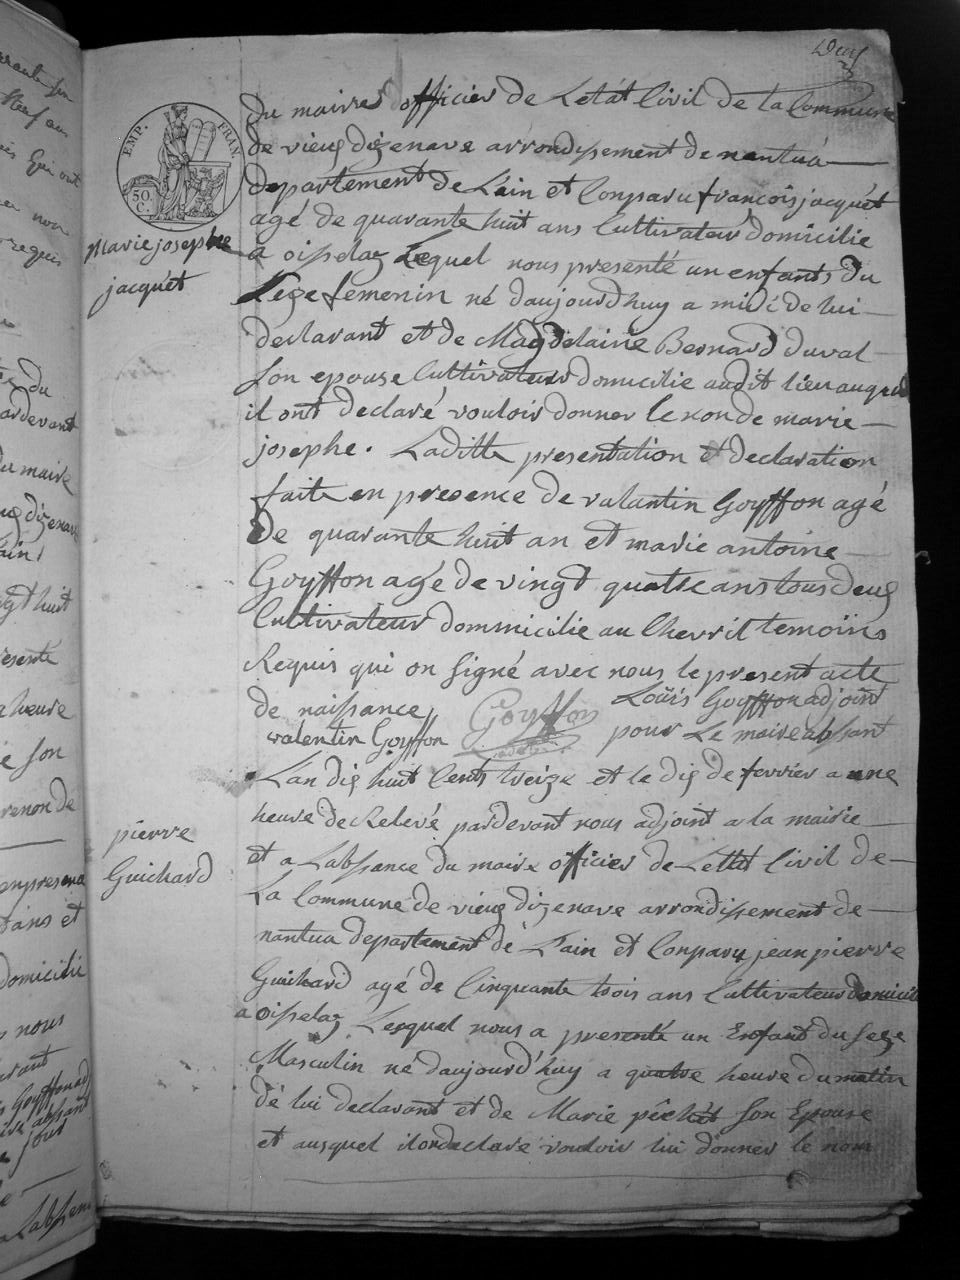 Deux
EMP. FRAN.
50. C.
Du maires officier de Letât Civil de la Commune
de vieux dizenave arrondissement de nantua
departement de Lain et Conparu francois jacquet
agé de quarante huit ans Cultivateur domicilie
a oisselaz Lequel nous presenté un enfants du
Sexe femenin né daujourdhuy a midi de lui
declarant et de Magdelaine Bernard duval
Son epouse Cultivateur domicilie audit lieu auquel
il ont declaré vouloir donner le non de marie
josephe. Laditte presentation et declaration
faite en presence de valantin Goyffon agé
De quarante huit an et marie antoine
Goyffon agé de vingt quatre ans tous deux
Cultivateur dommicilie au Chevril temoins
Requis qui on Signé avec nous le present acte
de naissance
Marie josephe
jacquét
valentin Goyffon
Goyffon
Louis Goyffon adjoint
pour Le maire absant
Lan dix huit Cents treize et le dix de fevrier a une
heure de Relevé pardevant nous adjoint a la mairie
et a Labsance du maire officier de Lettat Civil de
La Commune de vieux dizenave arrondissement de
nantua departement de Lain et Conparu jean pierre
Guichard agé de Cinquante trois ans Cultivateur domicilie
a oisselaz Lesquel nous a presenté un Enfant du Sexe
Masculin né daujourd'huy a quatre heure du matin
dé lui declarant et de Marie pêchét Son Epouse
et ausquel ilon declaré vouloir lui donner le nom
pierre
Guichard